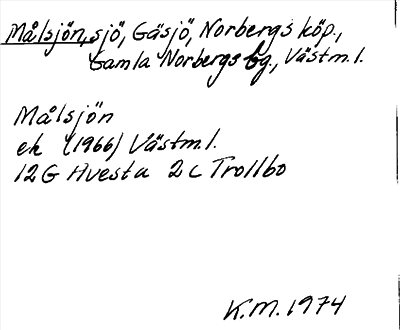 Målsjön, sjö, Gäsjö, Norbergs köp.,
Gamla Norbergs bg., Västm.l.
Målsjön
ek (1966) Västm.l.
12G Avesta 2c Trollbo
K.M. 1974